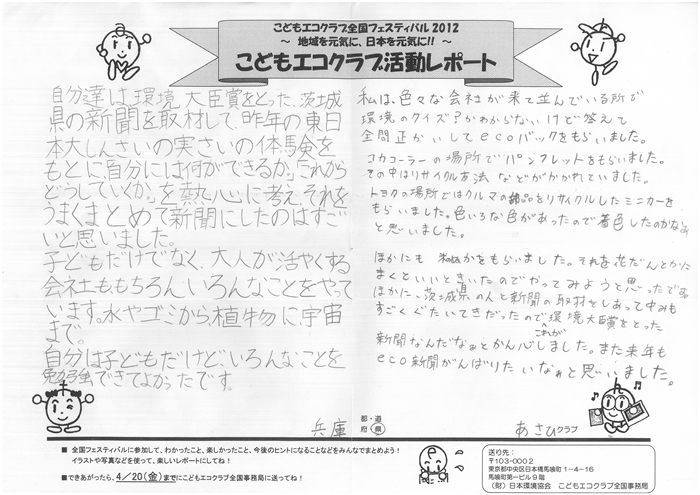 こどもエコクラブ全国フェスティバル2012
～ 地域を元気に、日本を元気に!! ～
こどもエコクラブ活動レポート
自分達は、環境大臣賞をとった、茨城
県の新聞を取材して、昨年の東日
本大しんさいの実さいの体験を
もとに、「自分には何ができるか」「これから
どうしていくか」を、熱心に考え、それを
うまくまとめて新聞にしたのはすご
いと思いました。
子どもだけでなく、大人が活やくする
会社ももちろん、いろんなことをやって
います。水やゴミから、植物に、宇宙
まで。
自分は子どもだけど、いろんなことを
勉強できてよかったです。
私は、色々な会社が来て並んでいる所で
環境のクイズ?かわからないけど答えて
全問正かいしてecoバックをもらいました。
コカコーラーの場所でパンフレットをもらいました。
その中はリサイクル方法などがかかれていました。
トヨタの場所ではクルマの部品をリサイクルしたミニカーを
もらいました。色いろな色があったので着色したのかなぁ
と思いました。
ほかにも をもらいました。それを花だんとかに
まくといいときいたのでやってみようと思ったです
ほかに、茨城県の人と新聞の取材をしあって中みも
すごくぐたいてきだったので環境大臣賞をとった
これが
新聞なんだなぁとかん心しました。また来年も
eco新聞がんばりたいなぁと思いました。
兵庫
都・道
府・県
あさひクラブ
■ 全国フェスティバルに参加して、わかったこと、楽しかったこと、今後のヒントになることなどをみんなでまとめよう!
イラストや写真などを使って、楽しいレポートにしてね!
■できあがったら、4/20(金)までにこどもエコクラブ全国事務局に送ってね!
送り先:
〒103-0002
東京都中央区日本橋馬喰町1-4-16
馬喰町第一ビル9階
(財)日本環境協会 こどもエコクラブ全国事務局